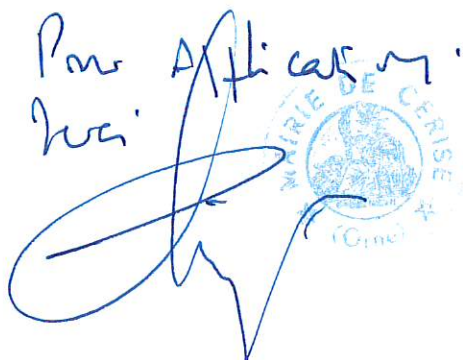 Pour Application.
Merci
MAIRIE DE CERISE
(Orne)